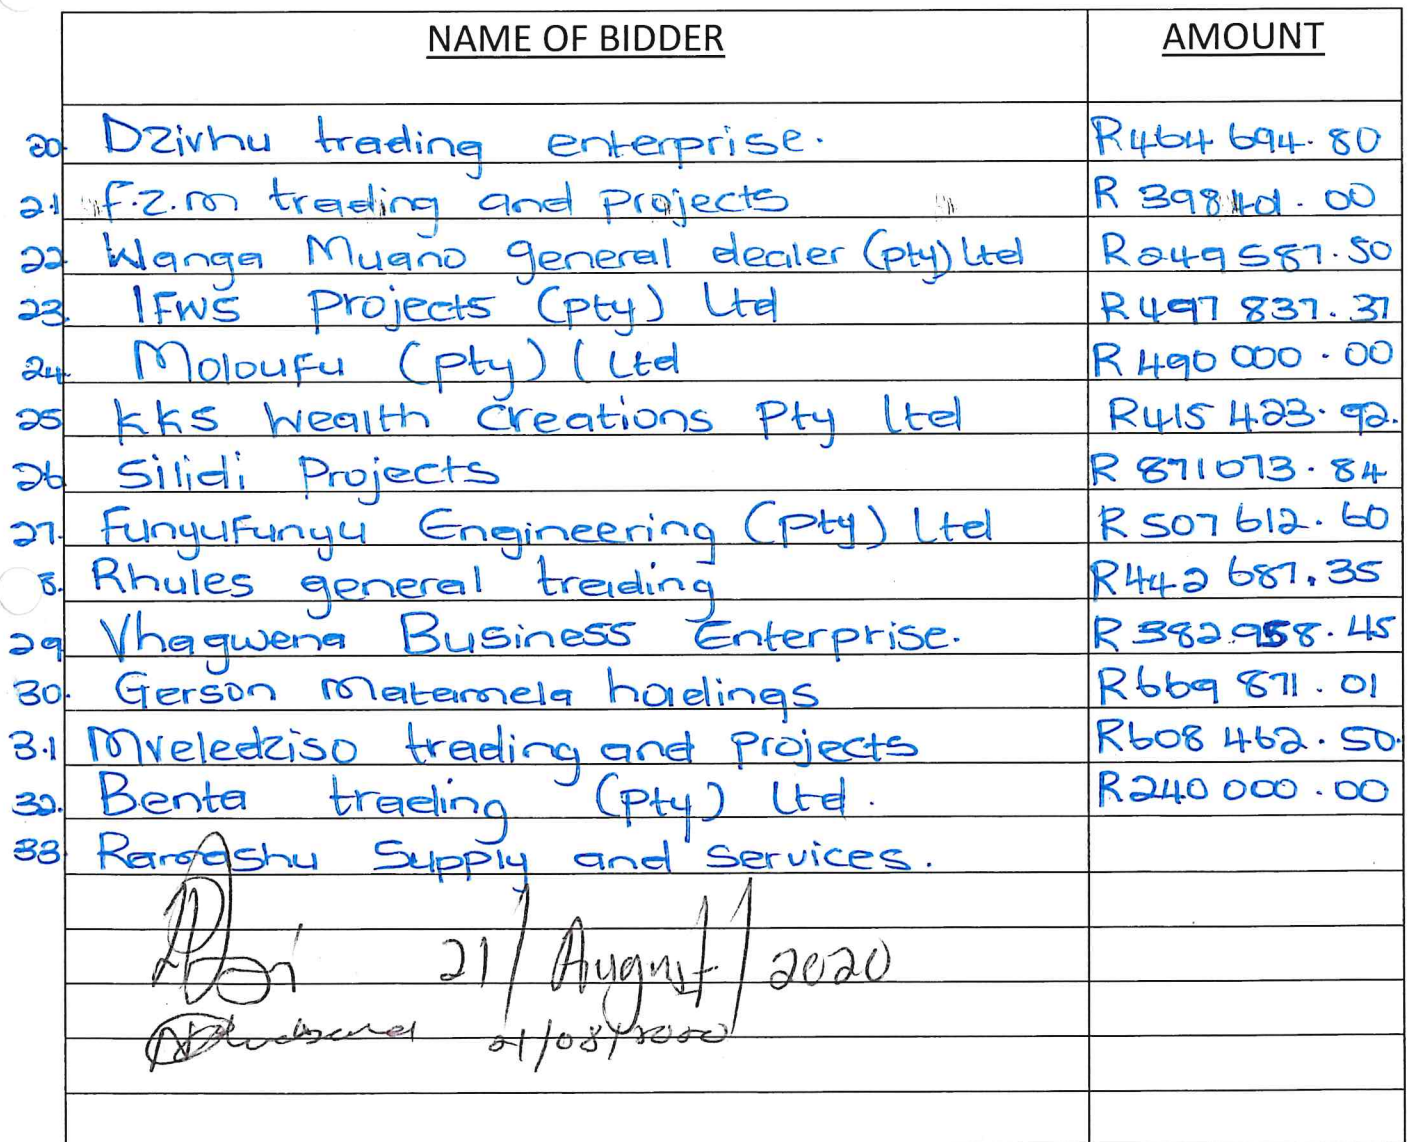 NAME OF BIDDER AMOUNT
20. Dzivhu trading enterprise. R464 694.80
21 F.Z.M trading and projects R 398 401.00
22. Wanga Muano general dealer (pty) Ltd R249 587.50
23. IFWS Projects (Pty) Ltd R497 837.37
24. Moloufu (Pty) ( Ltd R 490 000.00
25 KKS Wealth Creations Pty Ltd R415 423.92.
26 Silidi Projects R 871073.84
27. Funyufunyu Engineering (Pty) Ltd R507 612.60
8. Rhules general trading R442 687.35
29 Vhagwena Business Enterprise. R 382 958.45
30. Gerson Matamela holdings R669 871.01
31 Mveledziso trading and projects R608 462.50.
32. Benta trading (Pty) Ltd. R240 000.00
33 Supply and services.
21/August/2020
21/08/2020